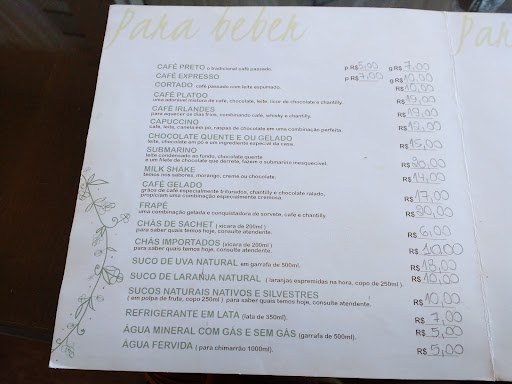 Para beber
Par
CAFÉ PRETO o tradicional café passado. p R$ 5,00 g R$ 7,00
CAFÉ EXPRESSO p R$ 7,00 g R$ 10,00
CORTADO café passado com leite espumado. R$ 10,00
CAFÉ PLATOO R$ 19,00
uma adorável mistura de café, chocolate, leite, licor de chocolate e chantilly.
CAFÉ IRLANDES R$ 19,00
para aquecer os dias frios, combinando café, whisky e chantilly.
CAPUCCINO R$ 12,00
café, leite, canela em pó, raspas de chocolate em uma combinação perfeita.
CHOCOLATE QUENTE E OU GELADO R$ 15,00
leite, chocolate em pó e um ingrediente especial da casa.
SUBMARINO R$ 20,00
leite condensado ao fundo, chocolate quente
e um filete de chocolate que derrete, fazem o submarino inesquecível.
MILK SHAKE R$ 14,00
temos nos sabores, morango, creme ou chocolate.
CAFÉ GELADO R$ 17,00
grãos de café especialmente triturados, chantilly e chocolate ralado,
propiciam uma combinação especialmente cremosa.
FRAPÉ R$ 20,00
uma combinação gelada e conquistadora de sorvete, café e chantilly.
CHÁS DE SACHET ( xícara de 200ml ) R$ 6,00
para saber quais temos hoje, consulte atendente.
CHÁS IMPORTADOS (xícara de 200ml ) R$ 10,00
para saber quais temos hoje, consulte atendente.
SUCO DE UVA NATURAL em garrafa de 500ml. R$ 13,00
SUCO DE LARANJA NATURAL ( laranjas espremidas na hora, copo de 250ml ). R$ 10,00
SUCOS NATURAIS NATIVOS E SILVESTRES R$ 10,00
( em polpa de fruta, copo 250ml ) para saber quais temos hoje, consulte atendente.
REFRIGERANTE EM LATA (lata de 350ml). R$ 7,00
ÁGUA MINERAL COM GÁS E SEM GÁS (garrafa de 500ml). R$ 5,00
ÁGUA FERVIDA ( para chimarrão 1000ml). R$ 5,00